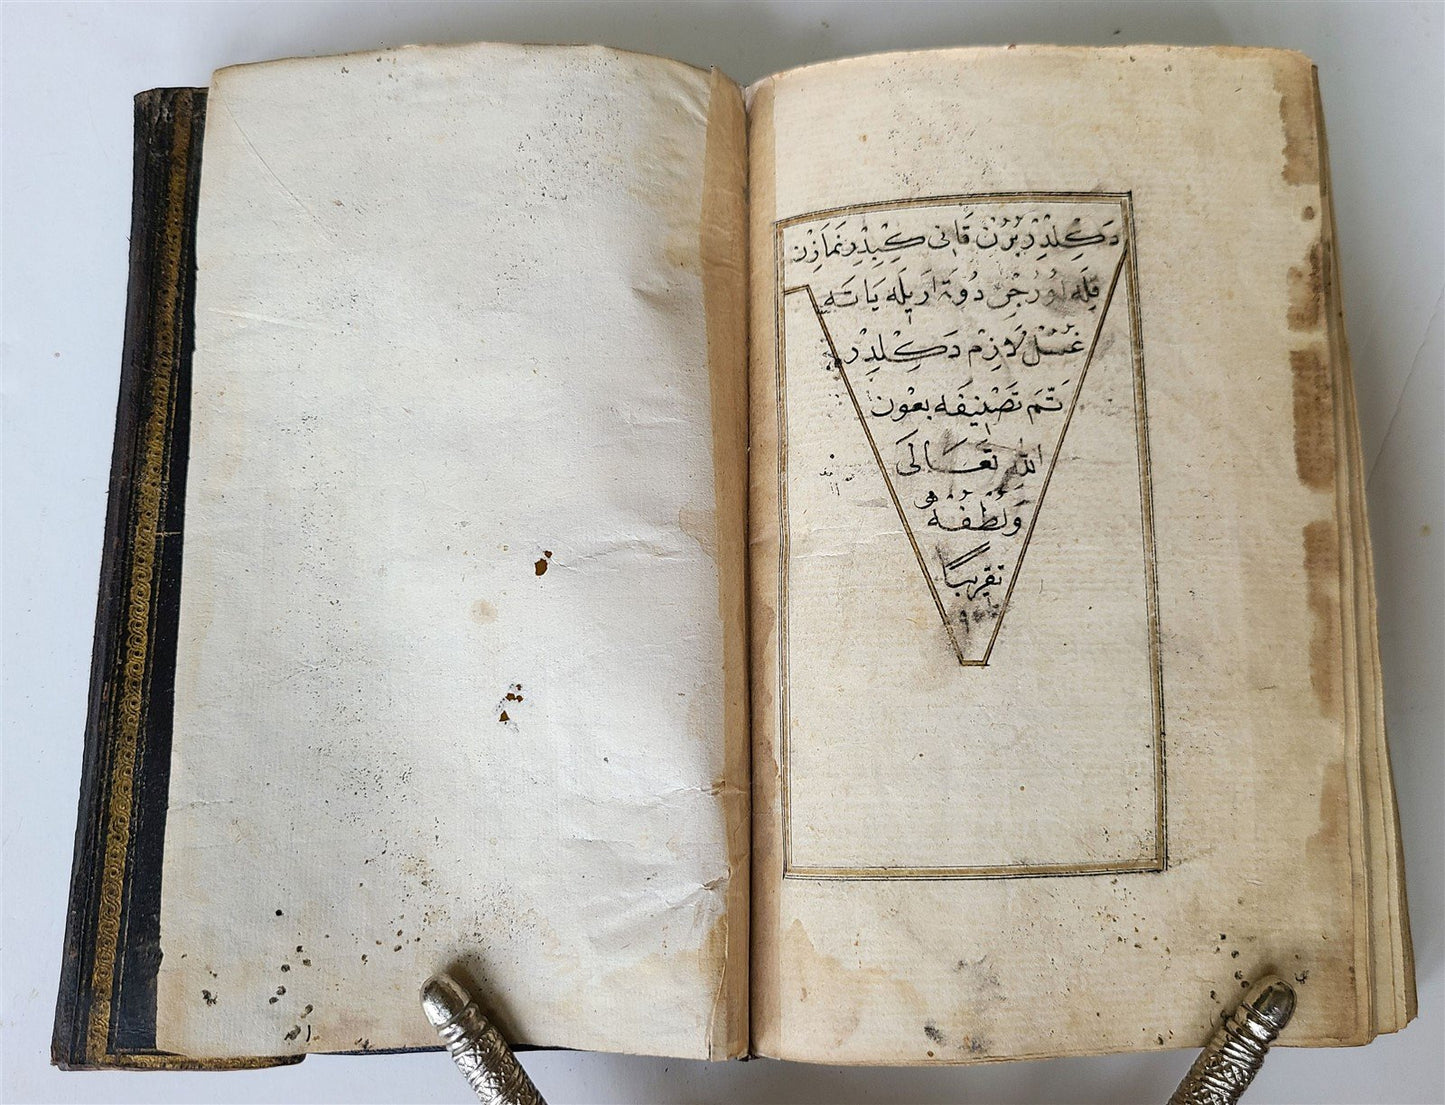 دَكِلْدِرْ بُرُنْ قَانِى كِبِدِرْ نَمَازِنْ
قِلَه اُورُجِنْ دُوتَه اَرِيلَه يَاتَه
غُسُلْ لَازِمْ دَكِلْدِرْ
تَمَّ تَصْنِيفَه بِعَوْنِ
اللهِ تَعَالَى
وَلُطْفُهُ
تقريبًا